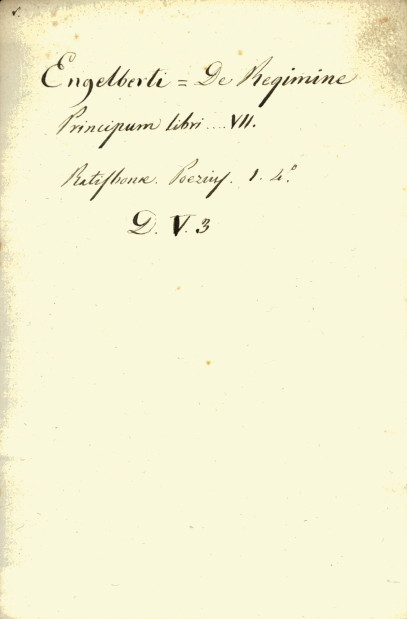 Engelberti = De Regimine
Principum libri .... VII.
Ratisbonæ. Poezius. 1. 4.º
D. V. 3